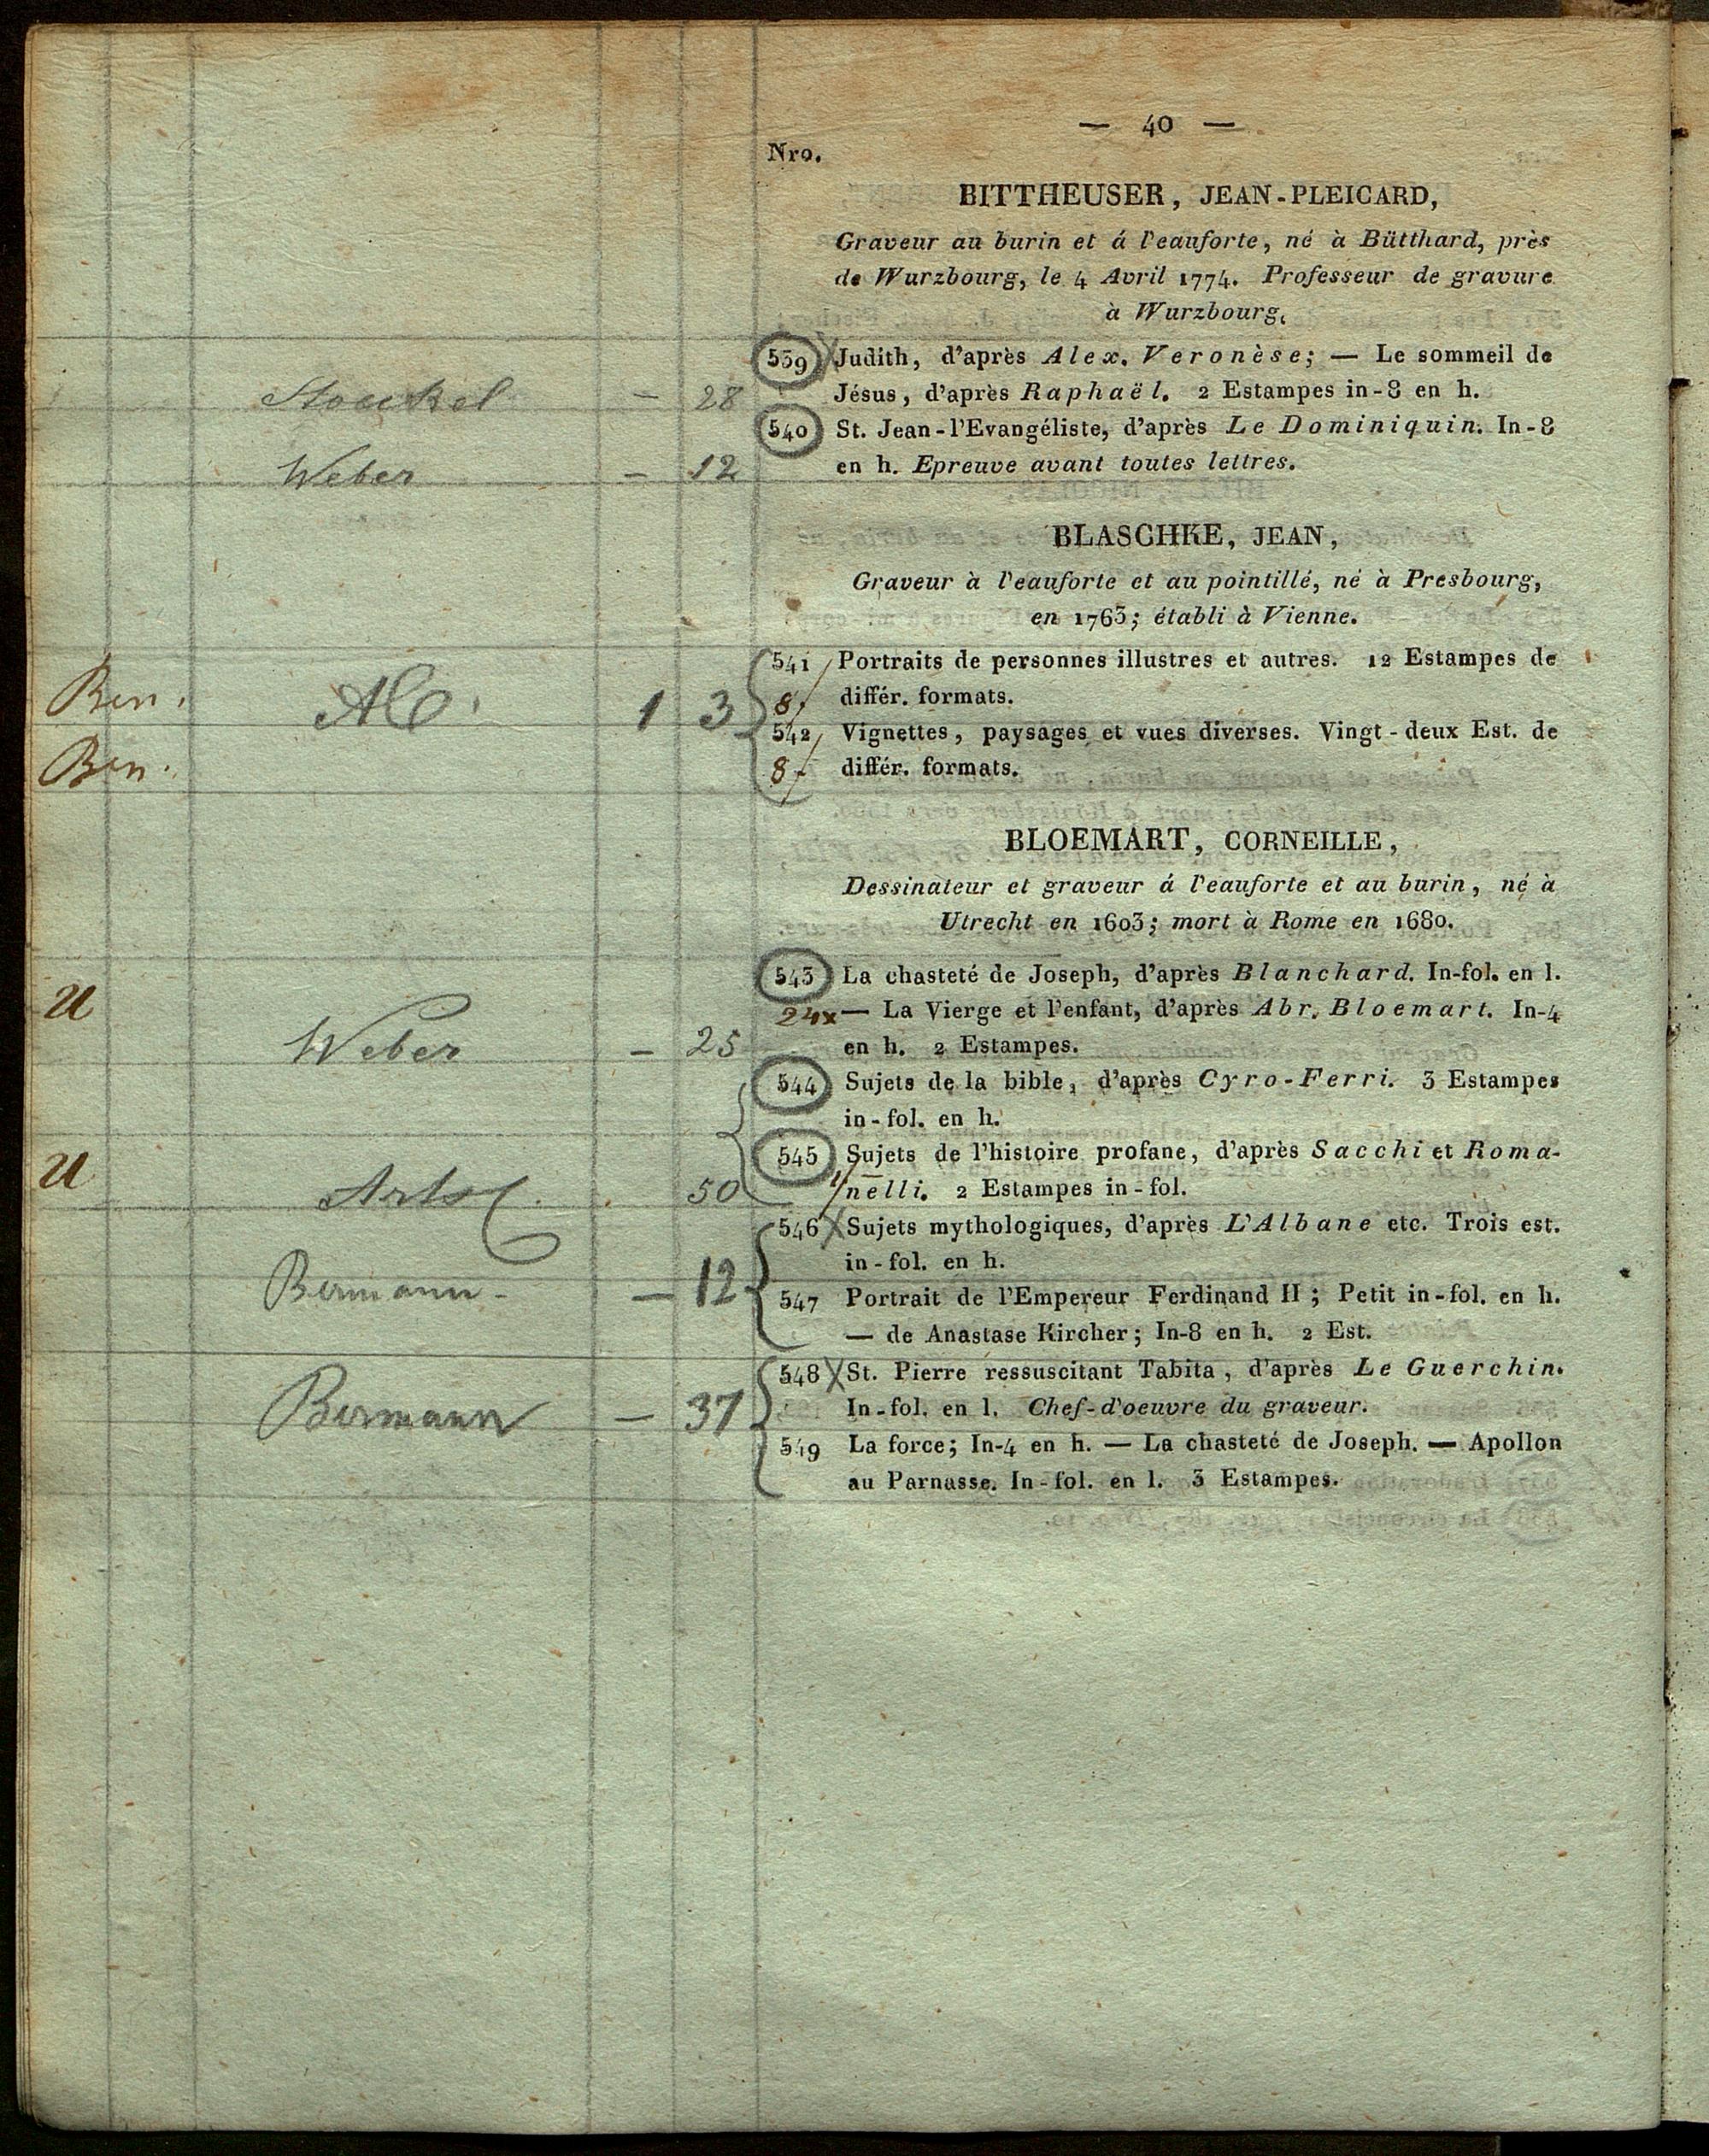 — 40 —
Nro.
BITTHEUSER, JEAN-PLEICARD,
Graveur au burin et á l'eauforte, né à Bütthard, près
de Wurzbourg, le 4 Avril 1774. Professeur de gravure
à Wurzbourg.
539 Judith, d'après Alex. Veronèse; — Le sommeil de
Stoeckel — 28 Jésus, d'après Raphaël. 2 Estampes in-8 en h.
540 St. Jean-l'Evangéliste, d'après Le Dominiquin. In-8
Weber — 12 en h. Epreuve avant toutes lettres.
BLASCHKE, JEAN,
Graveur à l'eauforte et au pointillé, né à Presbourg,
en 1763; établi à Vienne.
541 Portraits de personnes illustres et autres. 12 Estampes de
Ben. 1 3 8 différ. formats.
542 Vignettes, paysages et vues diverses. Vingt-deux Est. de
Ben. 8 différ. formats.
BLOEMART, CORNEILLE,
Dessinateur et graveur á l'eauforte et au burin, né à
Utrecht en 1603; mort à Rome en 1680.
543 La chasteté de Joseph, d'après Blanchard. In-fol. en l.
U 24x — La Vierge et l'enfant, d'après Abr. Bloemart. In-4
Weber — 25 en h. 2 Estampes.
544 Sujets de la bible, d'après Cyro-Ferri. 3 Estampes
in-fol. en h.
U 545 Sujets de l'histoire profane, d'après Sacchi et Roma-
50 nelli. 2 Estampes in-fol.
546 Sujets mythologiques, d'après L'Albane etc. Trois est.
in-fol. en h.
Bermann — 12 547 Portrait de l'Empereur Ferdinand II; Petit in-fol. en h.
— de Anastase Kircher; In-8 en h. 2 Est.
548 St. Pierre ressuscitant Tabita, d'après Le Guerchin.
Bermann — 37 In-fol. en l. Chef-d'oeuvre du graveur.
549 La force; In-4 en h. — La chasteté de Joseph. — Apollon
au Parnasse. In-fol. en l. 3 Estampes.